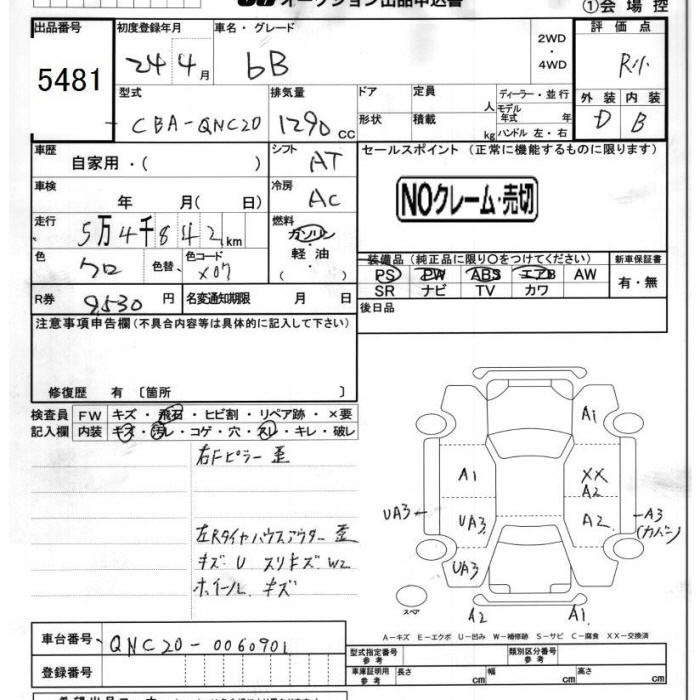 オークション出品申込書
①会場控
出品番号
5481
初度登録年月
24 4月
車名・グレード
bB
2WD
・
4WD
評価点
R小
外装 内装
D B
型式
CBA-QNC20
排気量
1290 cc
ドア
形状
定員 人
積載 kg
ディーラー・並行
モデル年式 年
ハンドル 左・右
車歴
自家用・( )
シフト
AT
車検
年 月(日)
冷房
AC
走行
5万4千842km
燃料
ガソリン
・
軽油
( )
色
クロ
色替
色コード
X07
R券
9530円
名変通知期限 月 日
セールスポイント(正常に機能するものに限ります)
NOクレーム・売切
装備品(純正品に限り○をつけてください)
PS PW ABS エアB AW
SR ナビ TV カワ
新車保証書
有・無
後日品
注意事項申告欄(不具合内容等は具体的に記入して下さい)
修復歴 有〔箇所 〕
検査員記入欄
FW キズ・飛石・ヒビ割・リペア跡・×要
内装 キズ・汚レ・コゲ・穴・スレ・キレ・破レ
右Fピラー歪
左Rタイヤハウスアウター歪
キズ U スリキズ W2
ホイールキズ
A1
A1 XX
A2
UA3 UA3 A2 A3
(カバー)
UA3
スペア
A2 A1
A-キズ E-エクボ U-凹み W-補修跡 S-サビ C-腐食 XX-交換済
車台番号
QNC20-0060901
登録番号
型式指定番号
参考
類別区分番号
参考
車庫証明用
参考
長さ cm 幅 cm 高さ cm